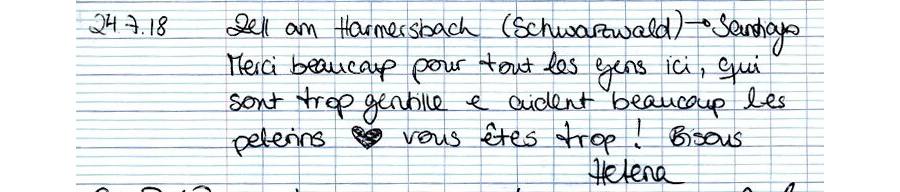 24.7.18 Zell am Harmersbach (Schwarzwald) → Santiago
Merci beaucoup pour tout les gens ici, qui
sont trop gentille e aident beaucoup les
pelerins ♥ vous êtes trop ! Bisous
Helena